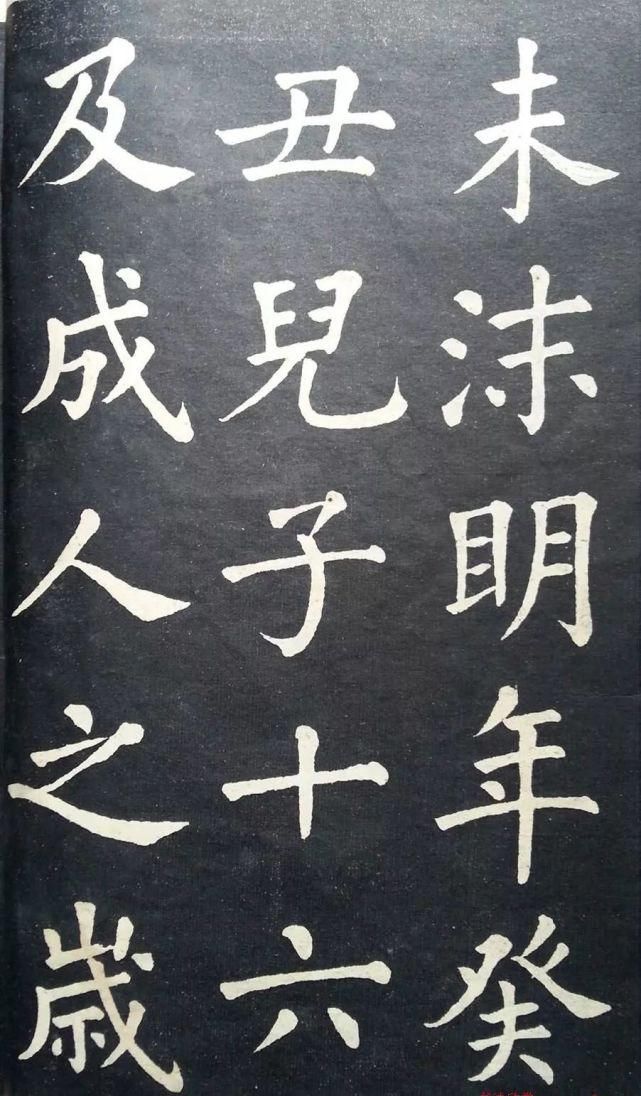 未沬眀年癸
丑兒子十六
及成人之歲